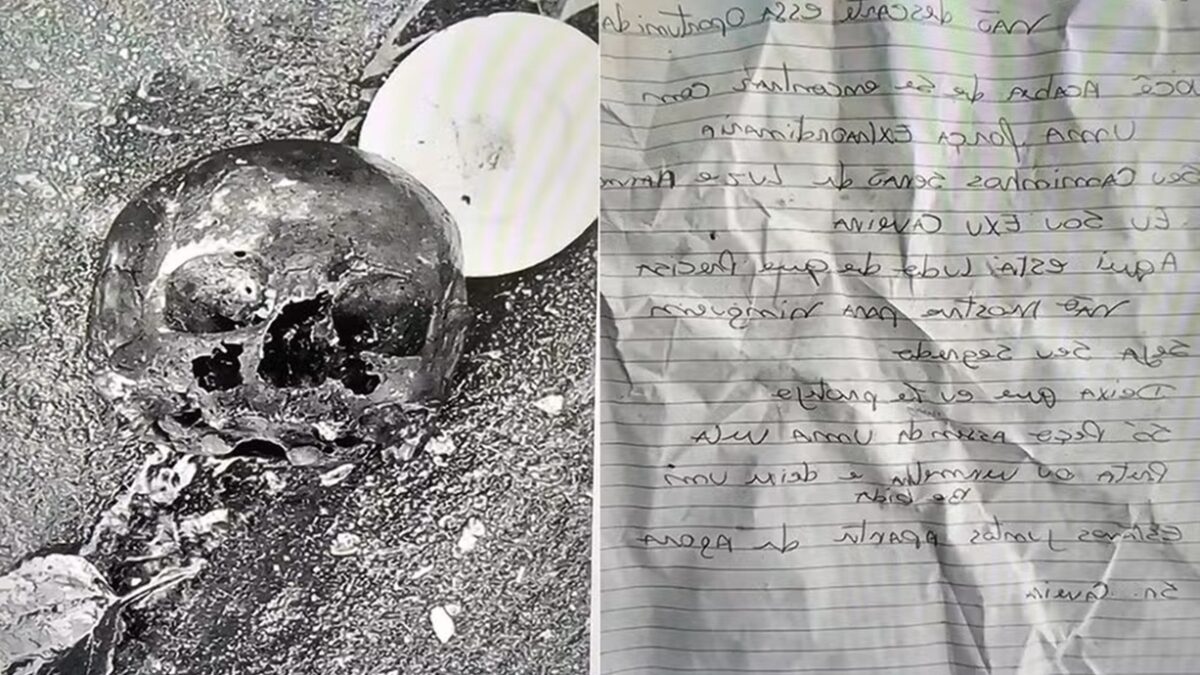 Não descarte essa oportunida
Você Acaba de se encontrar com
Uma força Extraordinária
Seu Caminhos SERÃO de Luz e
Eu Sou EXU CAVEIRA
Aqui está tudo de que Precisa
Não Mostre para Ninguem
Seja Seu Segredo
Deixa que eu te protejo
Só Peço Acenda Uma vela
Preta ou vermelha e deixe uma
Bebida
Estamos juntos Apartir de Agora
Sr. Caveira